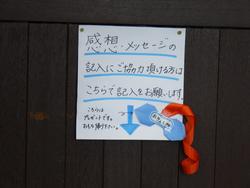 感想・メッセージの
記入にご協力頂ける方は
こちらで記入をお願いします。
こちらは
プレゼントです。